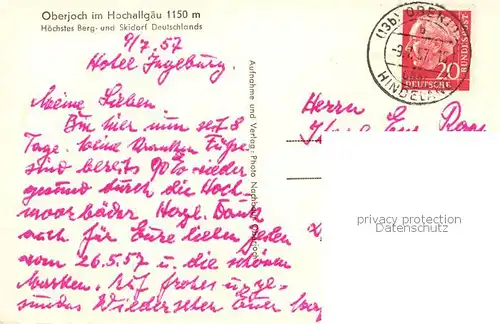 Oberjoch im Hochallgäu 1150 m
Höchstes Berg- und Skidorf Deutschlands
9/7.57
Hotel Ingeburg.
Meine Lieben.
Bin hier nun seit 8
Tage. Meine kranken Füße
sind bereits 90% wieder
gesund durch die Hoch-
moorbäder Herzl. Dank
noch für Eure lieben Zeilen
vom 26.5.57 u. die schönen
Marken. Auf frohes u. ge-
sundes Wiedersehen Euer
Aufnahme und Verlag: Photo
Oberjoch
(13b) OBERJOCH
HINDELANG
20
DEUTSCHE
BUNDESPOST
Herrn
privacy protection
Datenschutz